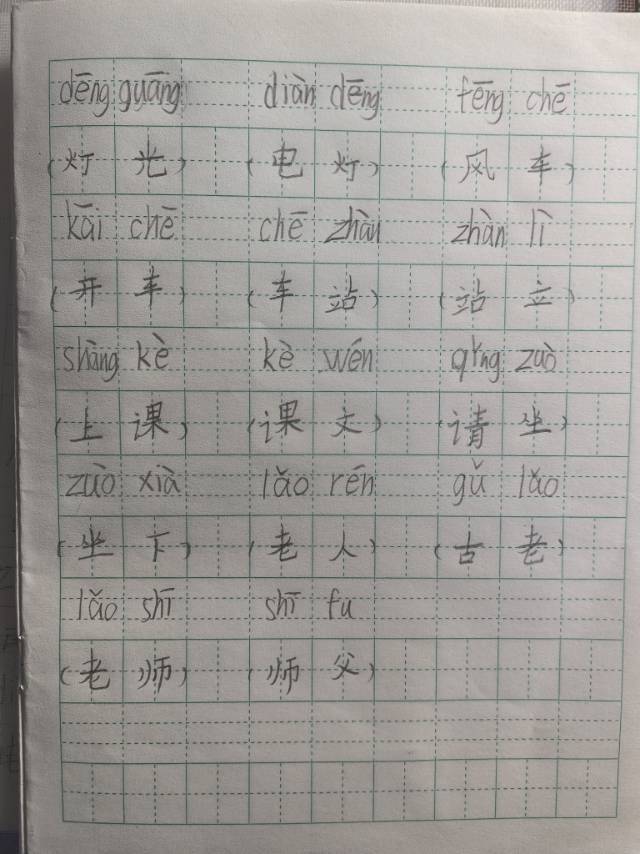 dēng guāng diàn dēng fēng chē
(灯光) (电灯) (风车)
kāi chē chē zhàn zhàn lì
(开车) (车站) (站立)
shàng kè kè wén qǐng zuò
(上课) (课文) (请坐)
zuò xià lǎo rén gǔ lǎo
(坐下) (老人) (古老)
lǎo shī shī fu
(老师) (师父)